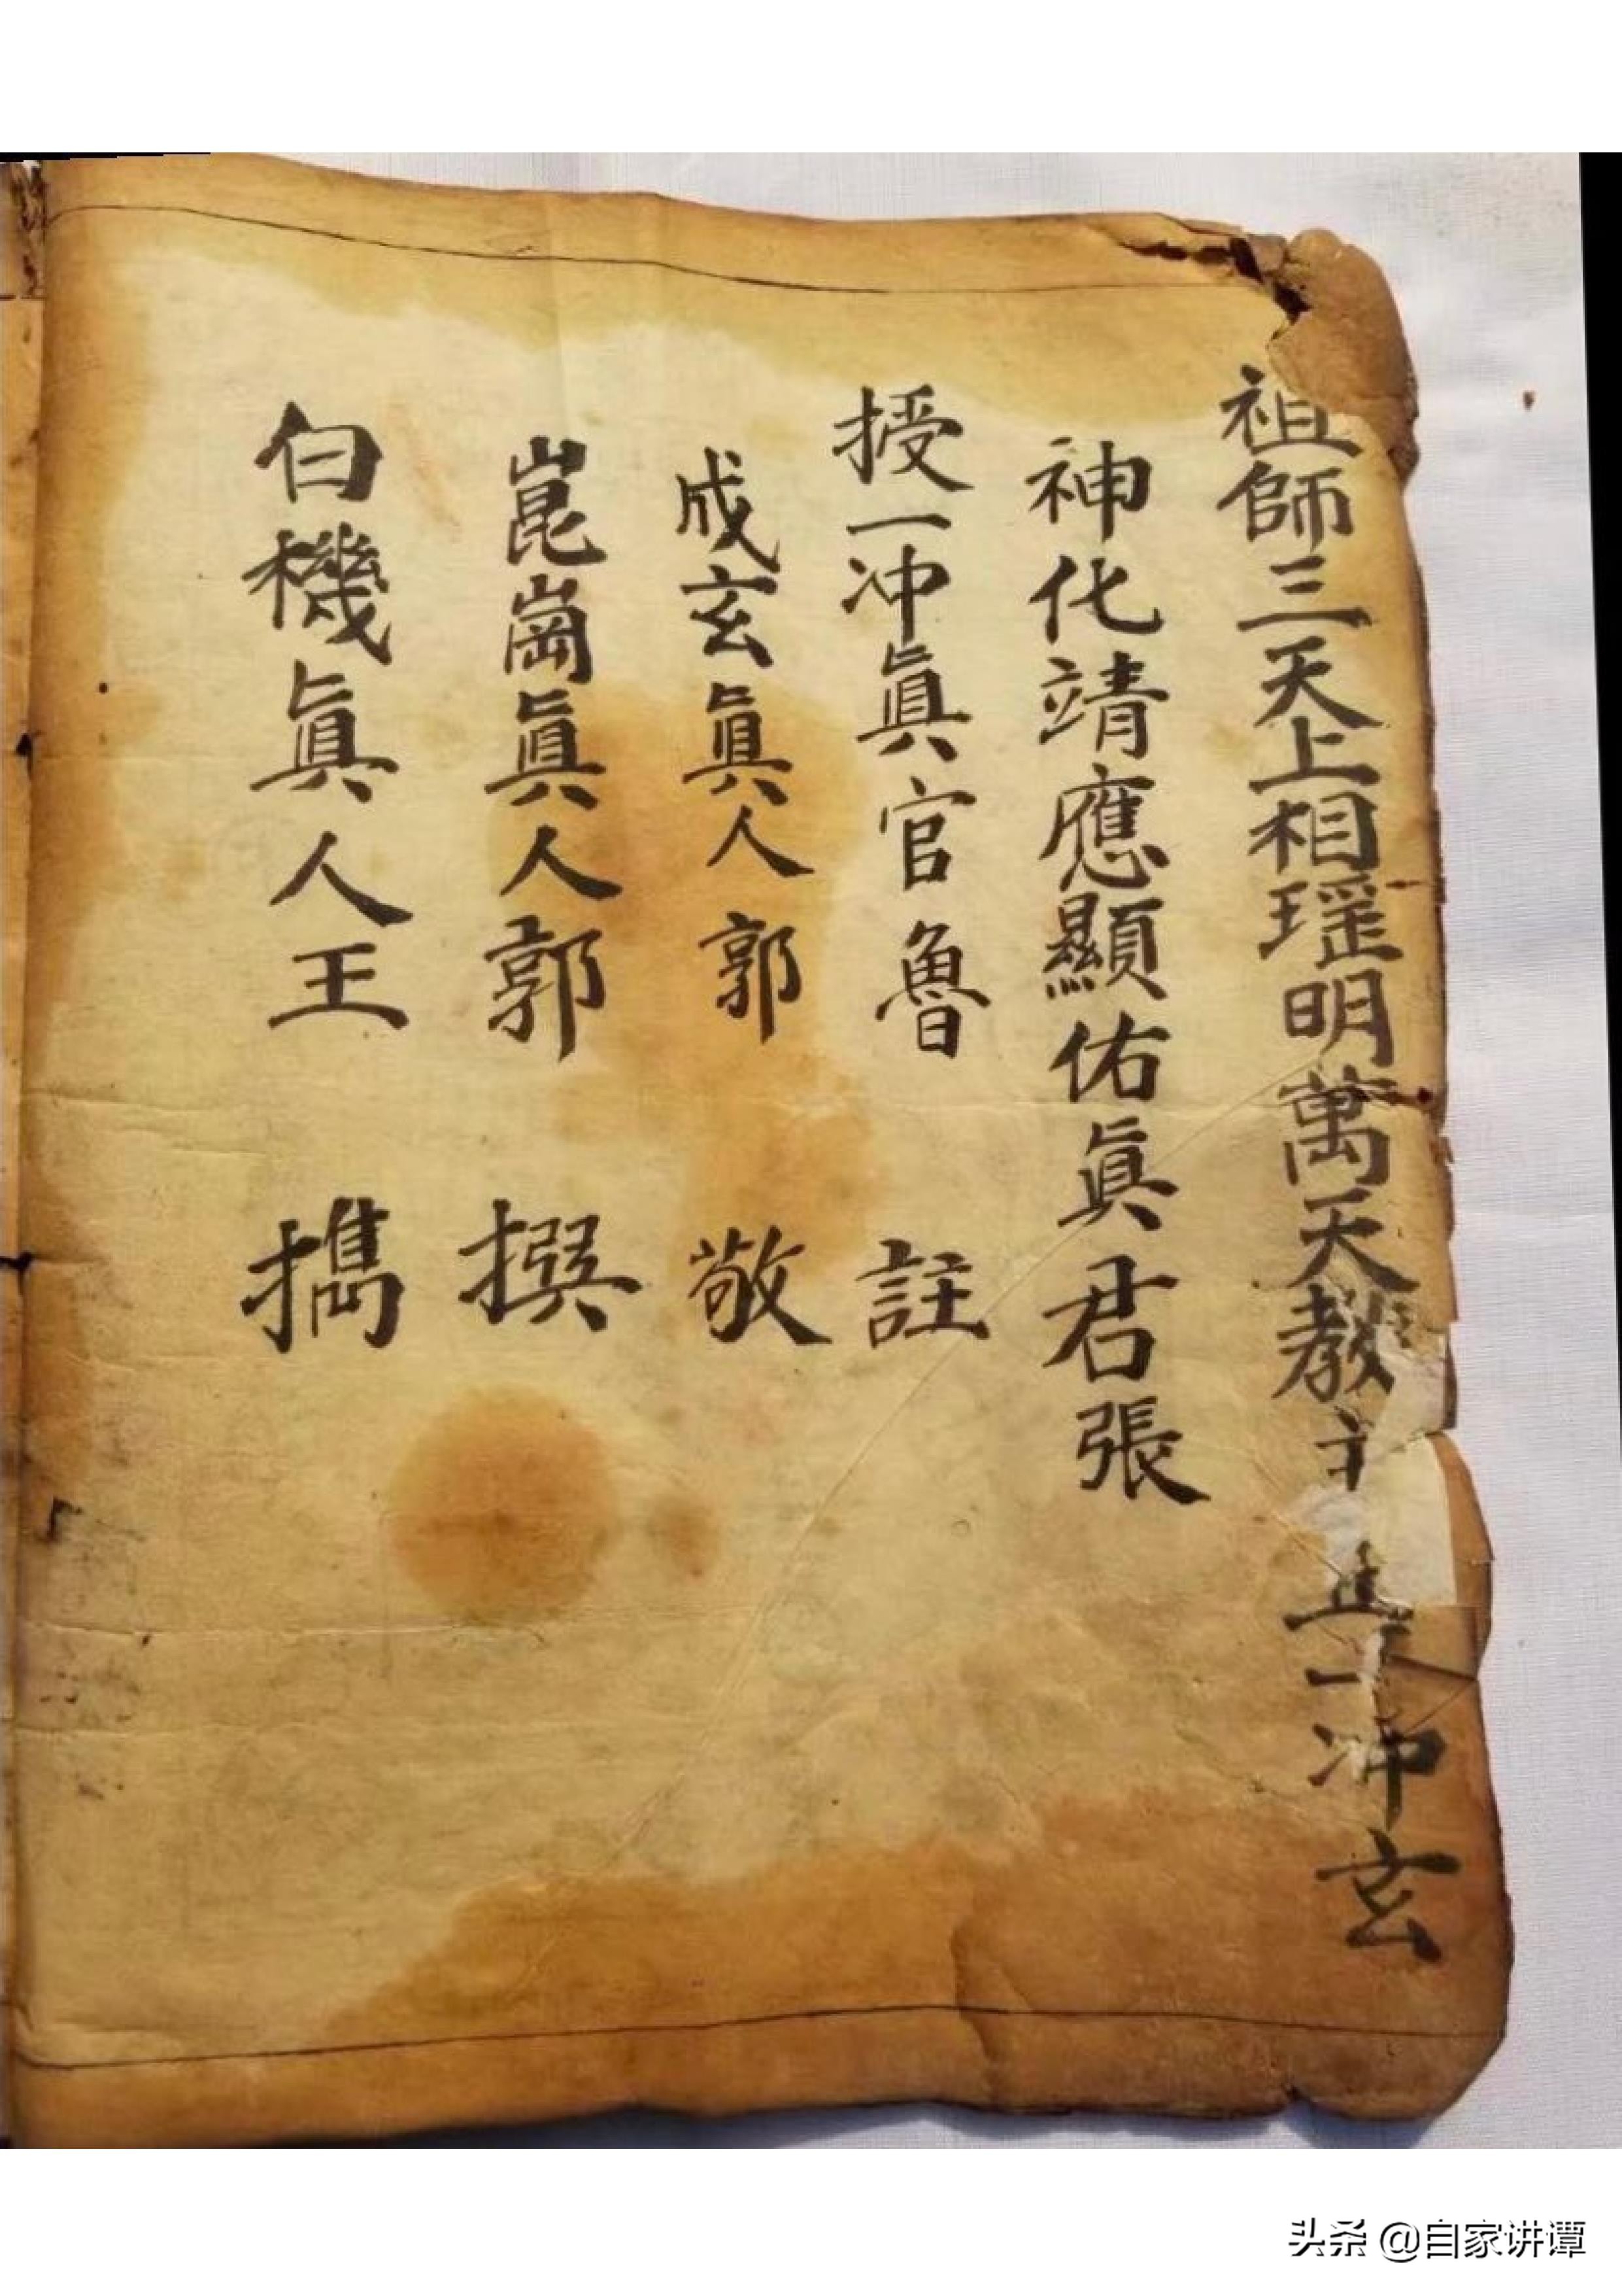 祖師三天上相瑶明萬天教主 一冲玄
神化靖應顯佑眞君張
授一冲眞官魯 註
成玄眞人郭 敬
崑崗眞人郭 撰
白機眞人王 擕
头条 @自家讲谭